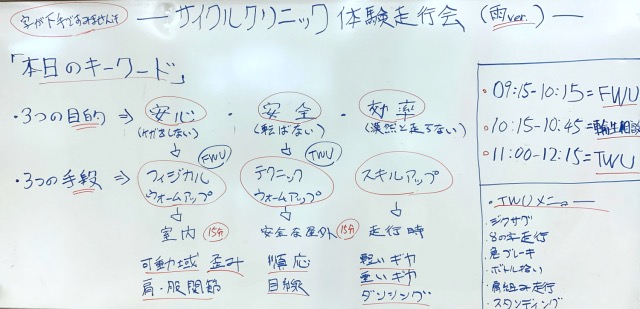 字が下手ですみません
サイクルクリニック 体験走行会 (雨ver.)
「本日のキーワード」
・3つの目的 ⇒ 安心 ・ 安全 ・ 効率
(ケガをしない) (転ばない) (漠然と走らない)
FWU TWU
・3つの手段 ⇒ フィジカル ウォームアップ テクニック ウォームアップ スキルアップ
室内 15分 安全な屋外 15分 走行時
可動域 歪み 順応 軽いギヤ
肩・股関節 目線 重いギヤ
ダンシング
・09:15-10:15=FWU
・10:15-10:45=
・11:00-12:15=TWU
・TWUメニュー
・ジグザグ
・8の字走行
・急ブレーキ
・ボトル拾い
・肩組み走行
・スタンディング